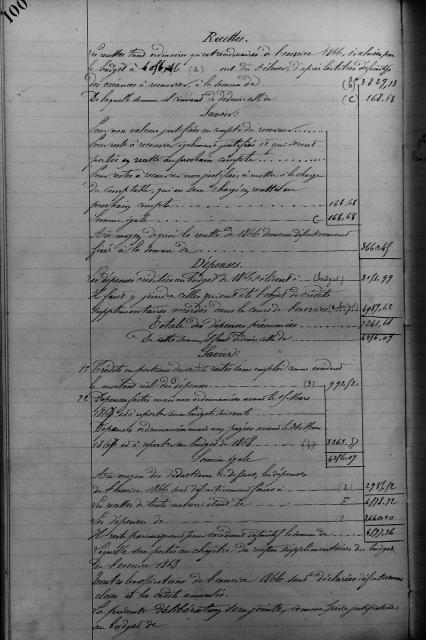 100
Recettes.
Les recettes tant ordinaires qu'extraordinaires de l'exercice 1866, évaluées par
le budget à (a) ont dû s'élever, d'après les titres définitifs
des créances à recouvrer, à la somme de (b) 3829,13
De laquelle somme il convient de déduire celle de (C 168,68
Savoir:
Pour non valeurs justifiées au compte du receveur
Pour reste à recouvrer également justifiés et qui seront
portés en recette au prochain compte
Pour restes à recouvrer non justifiés, à mettre à la charge
du comptable, qui en sera chargé en recette au
prochain compte 168,68
Somme égale C 168,68
Au moyen de quoi la recette de 1866 demeure définitivement
fixée à la somme de 3660,45
Dépenses.
Les dépenses créditées au budget de 1866 s'élèvent à (budget)
Il faut y joindre celles qui ont été l'objet de crédits
supplémentaires accordés dans le cours de l'exercice
Total des dépenses présumées
De cette somme il faut déduire celle de 4256,09
Savoir:
1° Crédits ou portions de crédits restés sans emploi comme excédant
le montant réel des dépenses (3) 992,52
2° Dépenses faites mais non ordonnancées avant le 15 Mars
1867 et à reporter aux budgets suivants
Dépenses ordonnancées mais non payées avant le 31 Mars
1867 et à reporter au budget de 1868 (4) 3263,57
Somme égale 4256,09
Au moyen des déductions ci-dessus, les dépenses
de l'exercice 1866 sont définitivement fixées à
Les recettes de toute nature étant de E
Les dépenses de
Il reste par conséquent pour excédent définitif la somme de
Laquelle sera portée au chapitre des recettes supplémentaires du budget
de l'exercice 1868
Toutes les opérations de l'exercice 1866 sont déclarées définitivement
closes et les crédits annulés.
La présente délibération sera jointe, comme pièce justificative
au budget de